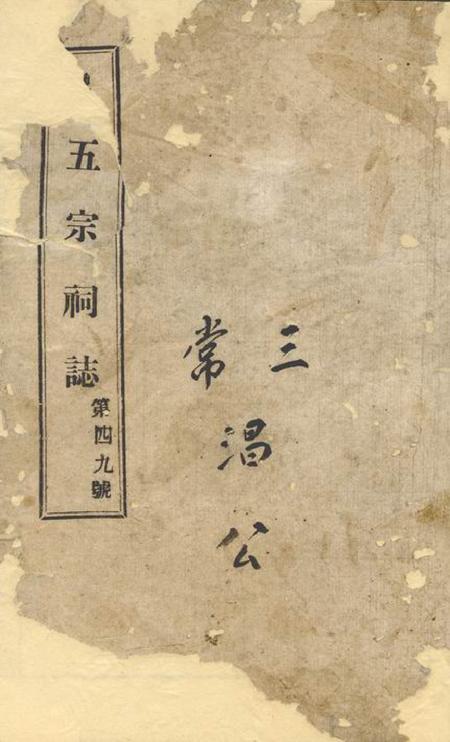 三常
淐公
五宗祠誌
第四九號